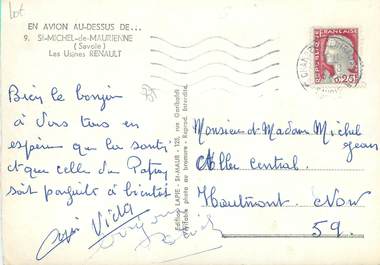 Lot
EN AVION AU-DESSUS DE...
9. St-MICHEL-de-MAURIENNE
(Savoie)
Les Usines RENAULT
REPUBLIQUE FRANÇAISE
0,25
POSTES
Bien le bonjour
à Vous tous en
espérant que la santé
et que celle du Papay
soit parfaite à bientôt
Vida
Edition LAPIE - St-MAUR - 125, rue Garibaldi
Véritable photo au bromure - Reprod. Interdite.
Monsieur et Madame Michel
Jean
Allée Central.
Hautmont Nord
59.